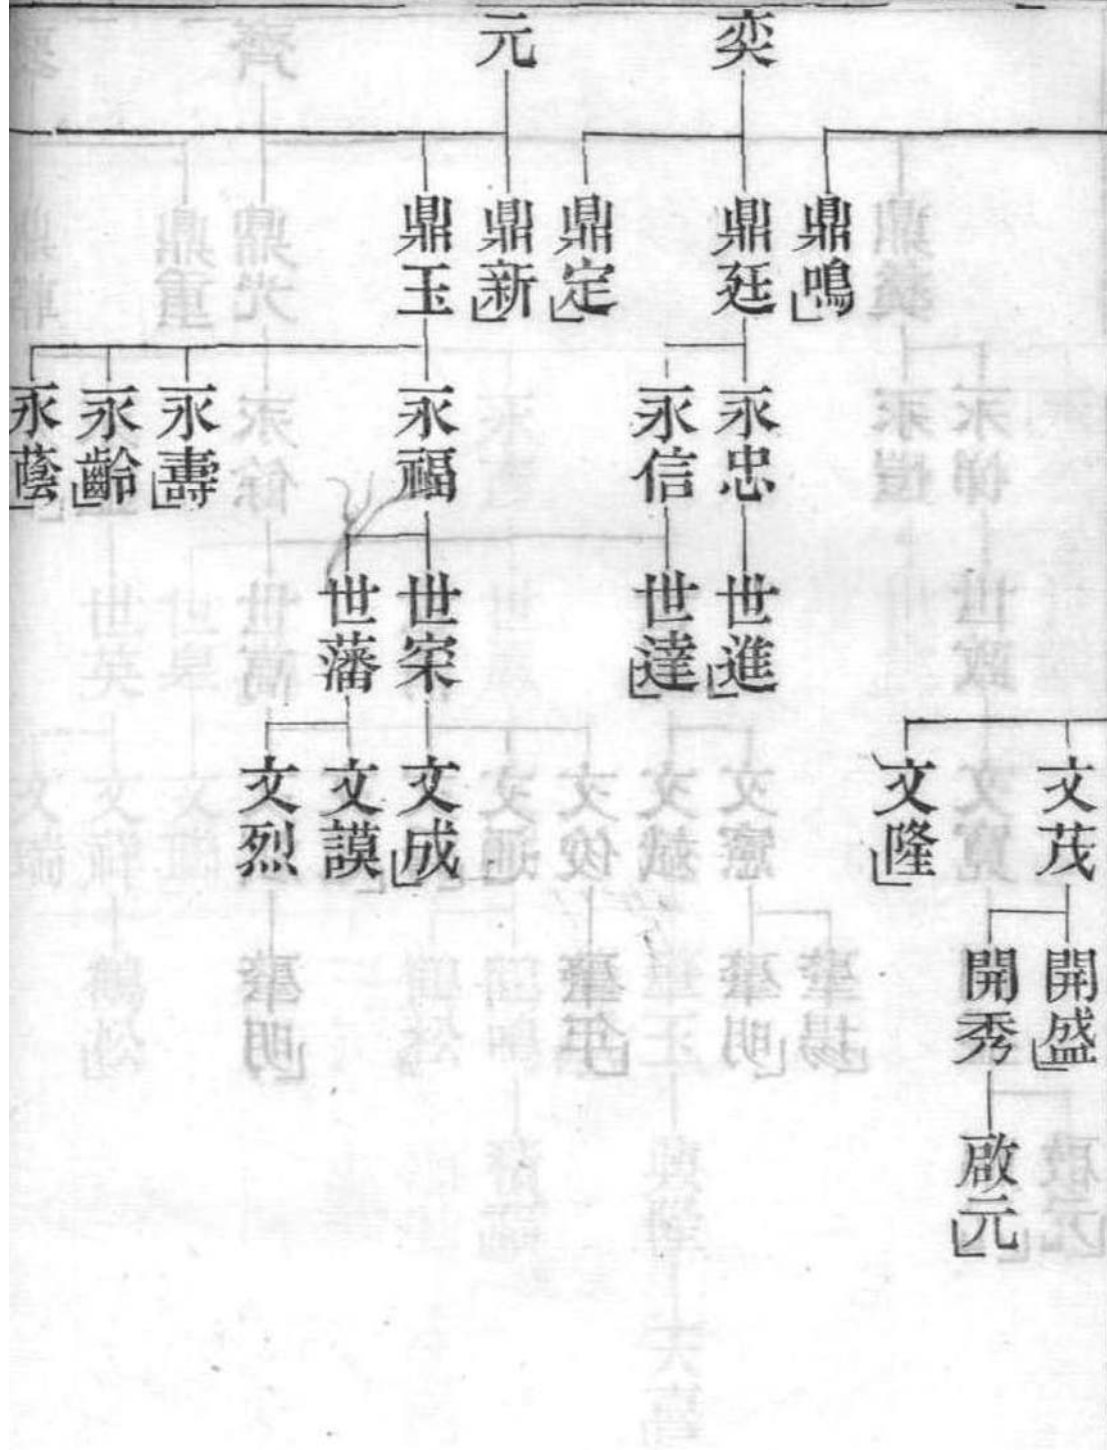 奕
元
鼎鳴
鼎廷
鼎定
鼎新
鼎玉
永忠
永信
永福
永壽
永齡
永蔭
世進
世達
世宋
世藩
文茂
文隆
文成
文謨
文烈
開盛
開秀
啟元